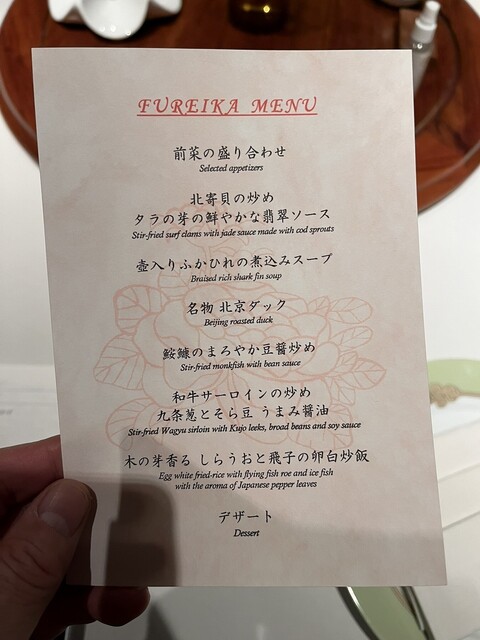 FUREIKA MENU
前菜の盛り合わせ
Selected appetizers
北寄貝の炒め
タラの芽の鮮やかな翡翠ソース
Stir-fried surf clams with jade sauce made with cod sprouts
壺入りふかひれの煮込みスープ
Braised rich shark fin soup
名物 北京ダック
Beijing roasted duck
鮟鱇のまろやか豆醤炒め
Stir-fried monkfish with bean sauce
和牛サーロインの炒め
九条葱とそら豆 うまみ醤油
Stir-fried Wagyu sirloin with Kujo leeks, broad beans and soy sauce
木の芽香る しらうおと飛子の卵白炒飯
Egg white fried-rice with flying fish roe and ice fish
with the aroma of Japanese pepper leaves
デザート
Dessert